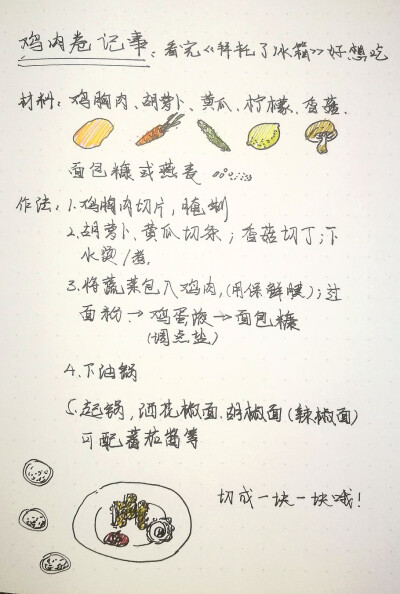 鸡肉卷记事：看完《拜托了冰箱》好想吃
材料：鸡胸肉、胡萝卜、黄瓜、柠檬、香菇、
面包糠或燕麦
作法：1.鸡胸肉切片，腌制
2.胡萝卜、黄瓜切条；香菇切丁；下
水烫/煮.
3.将蔬菜包入鸡肉,(用保鲜膜)；过
面粉→鸡蛋液→面包糠
(调点盐)
4.下油锅
5.起锅，洒花椒面、胡椒面(辣椒面)
可配蕃茄酱等
切成一块一块哦！